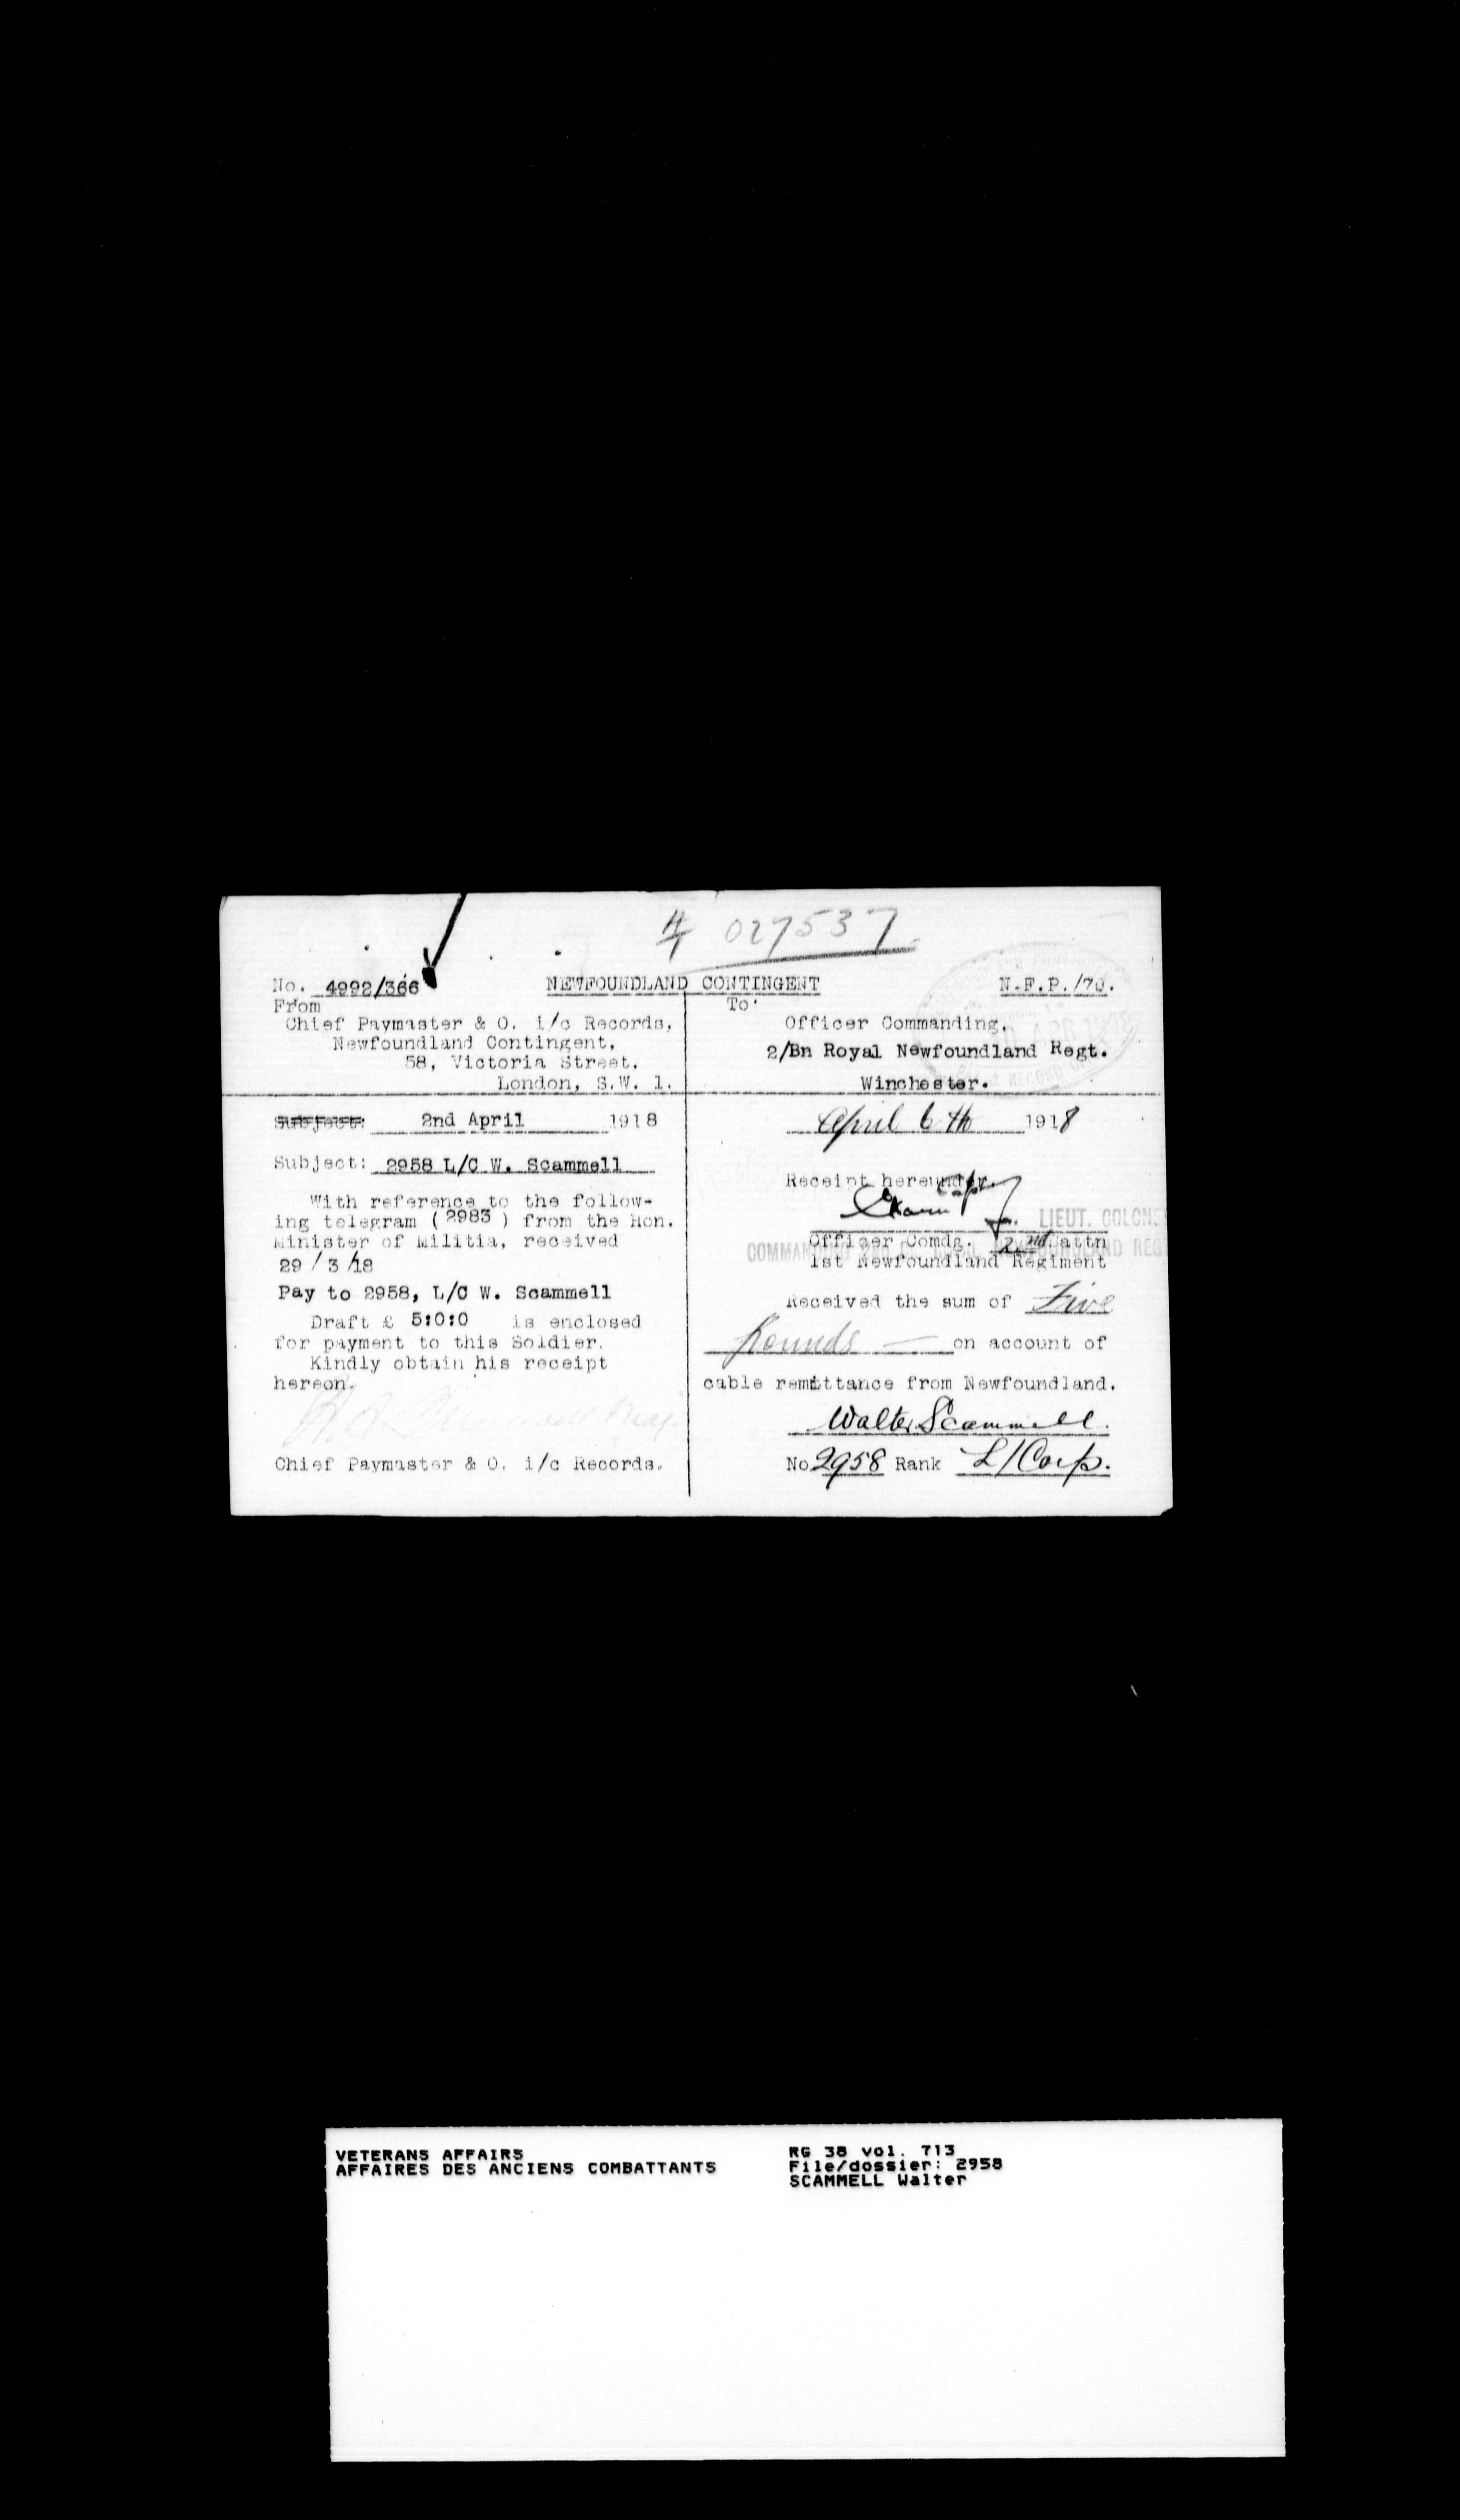 027537
No. 4992/366
NEWFOUNDLAND CONTINGENT
N.F.P./70.
From
Chief Paymaster & O. i/c Records,
Newfoundland Contingent,
58, Victoria Street,
London, S.W. 1.
To
Officer Commanding,
2/Bn Royal Newfoundland Regt.
Winchester.
APR 1918
Subject: 2nd April 1918
Subject: 2958 L/C W. Scammell
With reference to the follow-
ing telegram (2983) from the Hon.
Minister of Militia, received
29/3/18
Pay to 2958, L/C W. Scammell
Draft £ 5:0:0 is enclosed
for payment to this Soldier.
Kindly obtain his receipt
hereon.
Chief Paymaster & O. i/c Records.
April 6th 1918
Receipt hereunder.
Capt
LIEUT. COLONE
Officer Comdg. 2nd Battn
1st Newfoundland Regiment
Received the sum of Five
Pounds — on account of
cable remittance from Newfoundland.
Walter Scammell.
No 2958 Rank L/Corp.
VETERANS AFFAIRS
AFFAIRES DES ANCIENS COMBATTANTS
RG 38 vol. 713
File/dossier: 2958
SCAMMELL Walter